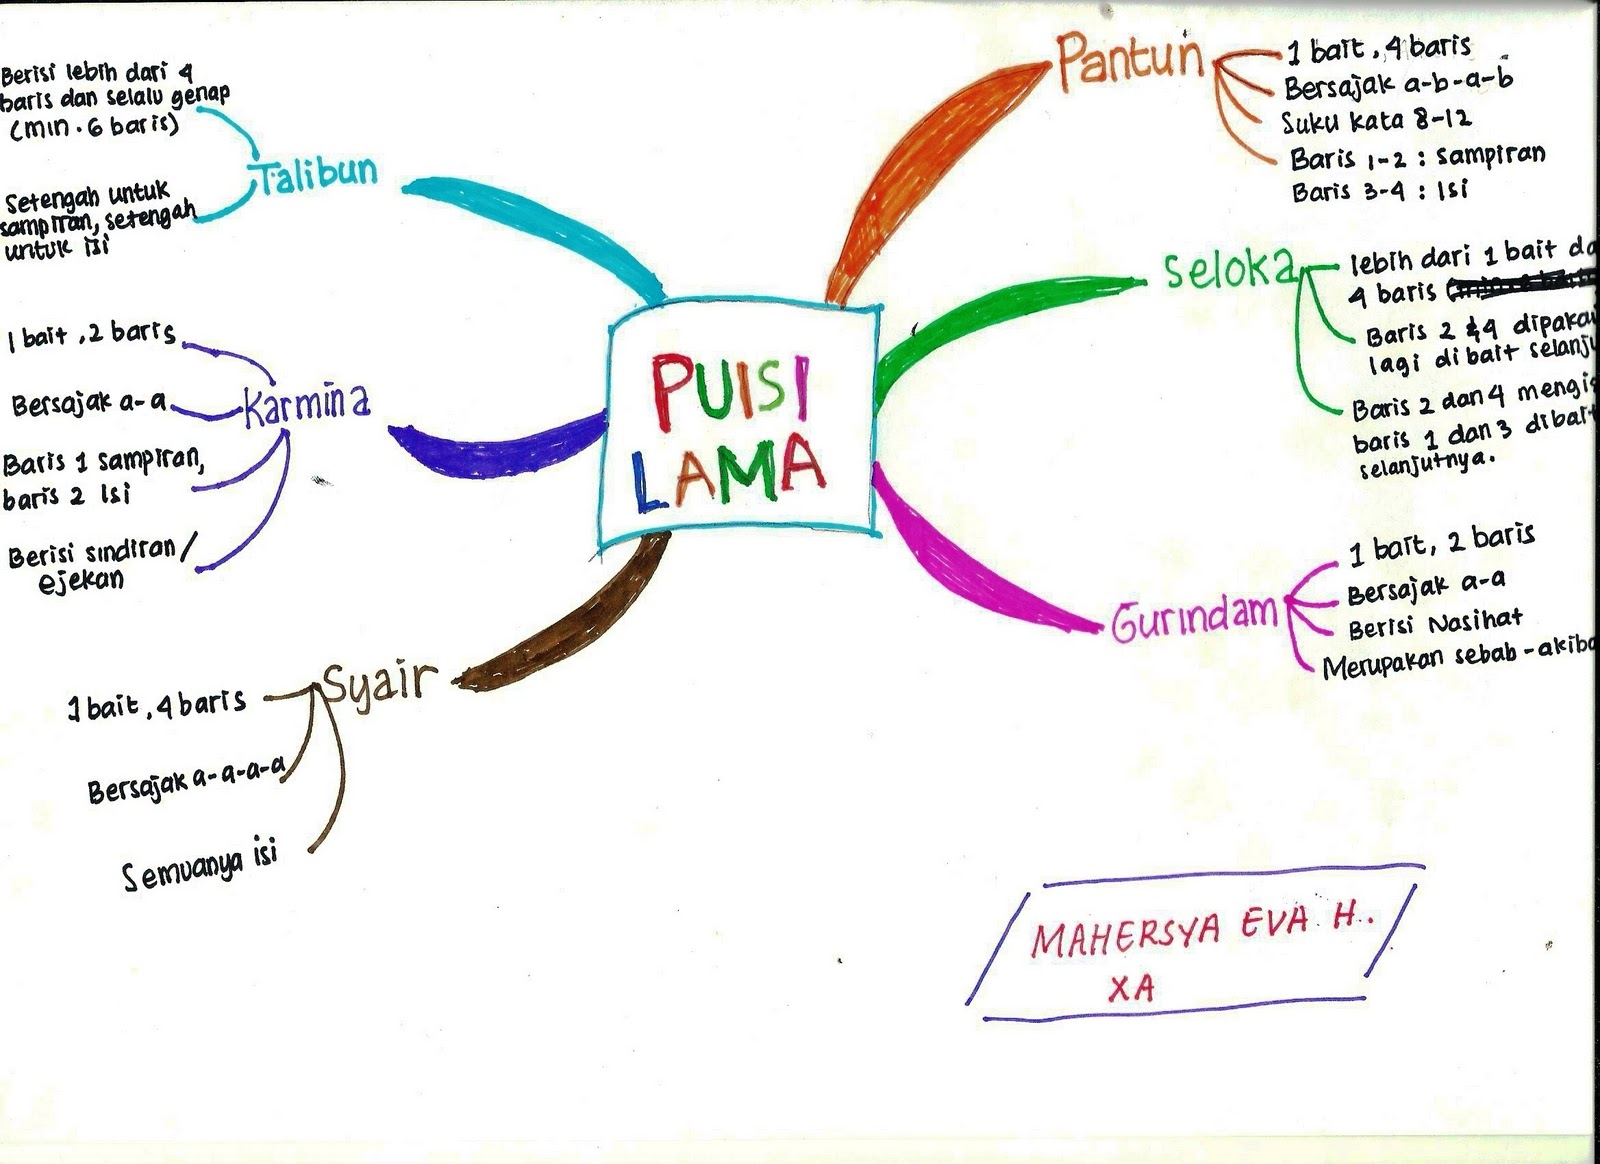 PUISI
LAMA
Pantun
1 bait, 4 baris
Bersajak a-b-a-b
Suku kata 8-12
Baris 1-2 : sampiran
Baris 3-4 : Isi
Seloka
lebih dari 1 bait
4 baris
Baris 2 & 4
lagi di bait
Baris 2 dan 4
baris 1 dan 3
selanjutnya.
Gurindam
1 bait, 2 baris
Bersajak a-a
Berisi Nasihat
Merupakan
Talibun
Berisi lebih dari 4
baris dan selalu genap
(min. 6 baris)
Setengah untuk
sampiran, setengah
untuk isi
Karmina
1 bait, 2 baris
Bersajak a-a
Baris 1 sampiran,
baris 2 Isi
Berisi sindiran/
ejekan
Syair
1 bait, 4 baris
Bersajak a-a-a-a
Semuanya isi
MAHERSYA EVA H.
XA